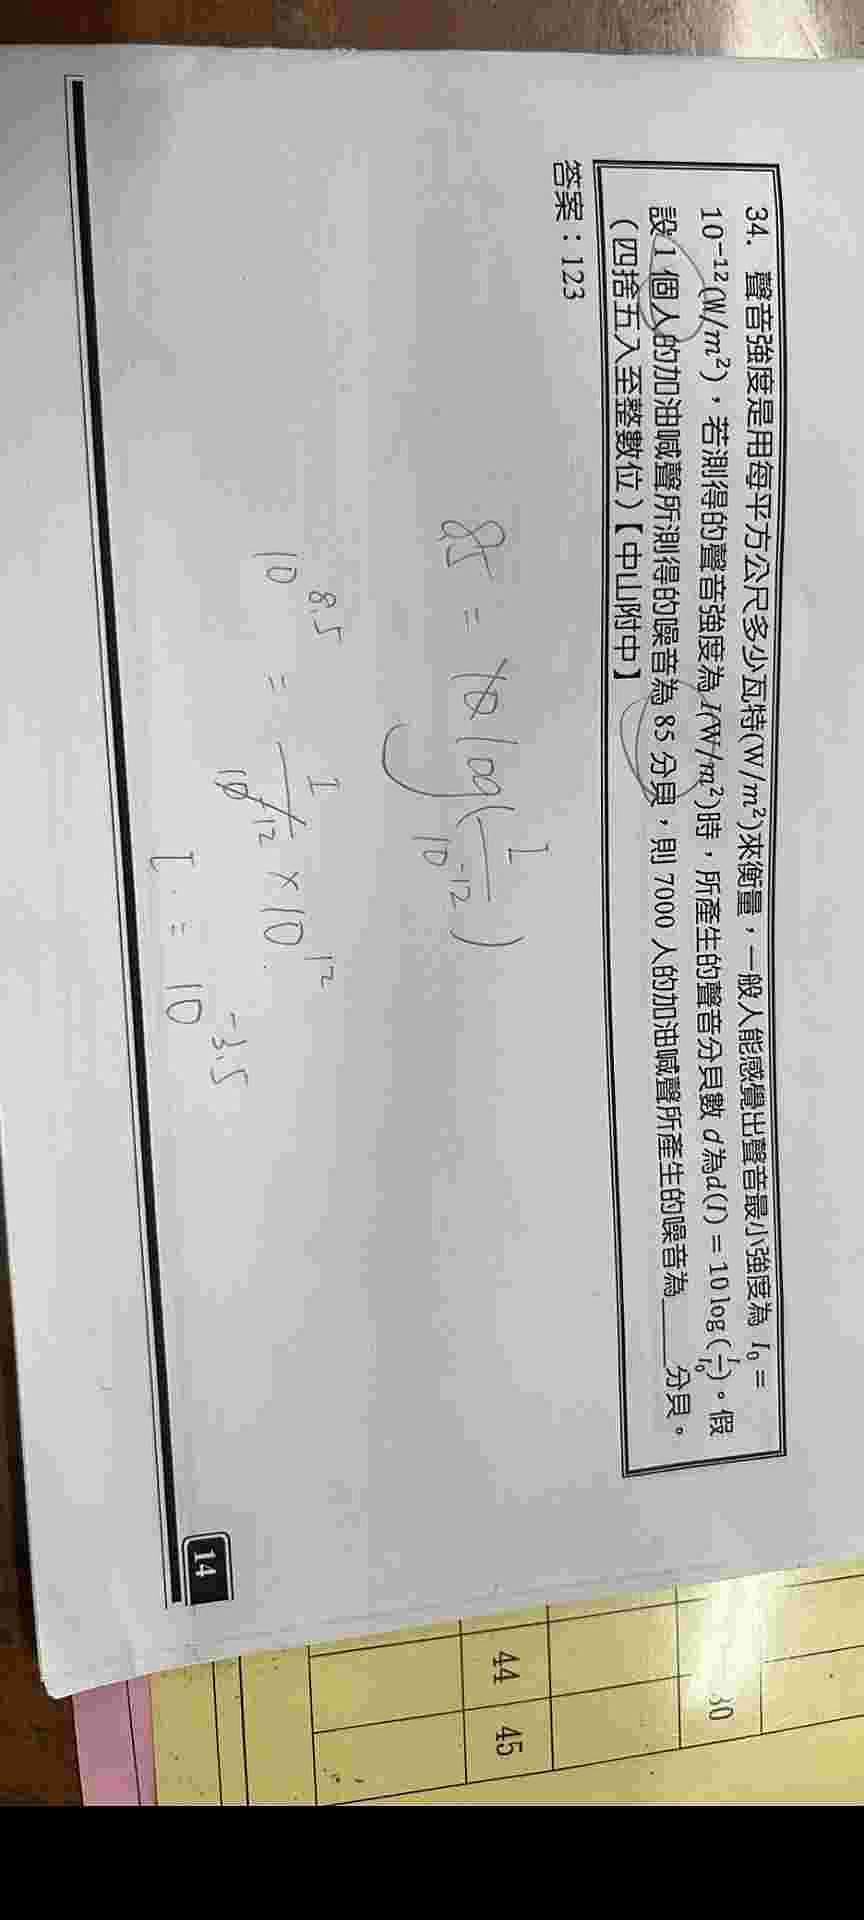 34. 聲音強度是用每平方公尺多少瓦特(W/m²)來衡量，一般人能感覺出聲音最小強度為 I₀ =
10⁻¹²(W/m²)，若測得的聲音強度為 I(W/m²)時，所產生的聲音分貝數 d為d(I) = 10 log(I/I₀)。假
設 1 個人的加油喊聲所測得的噪音為 85 分貝，則 7000 人的加油喊聲所產生的噪音為____分貝。
（四捨五入至整數位）【中山附中】
答案：123
85 = 10 log(I/10⁻¹²)
10^8.5 = I/10⁻¹² × 10¹²
I = 10^-3.5
14
30
44 45